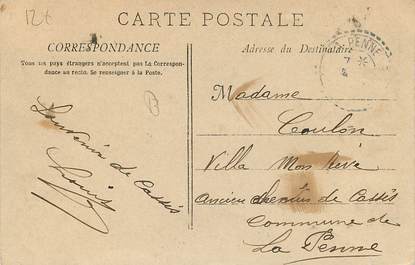 12€
CARTE POSTALE
CORRESPONDANCE
Tous les pays étrangers n'acceptent pas la Correspon-
dance au recto. Se renseigner à la Poste.
Adresse du Destinataire
PENNE
Souvenir de Cassis
Louis
Madame
Coulon
Villa Mon Rêve
Ancien chemin de Cassis
Commune de
La Penne